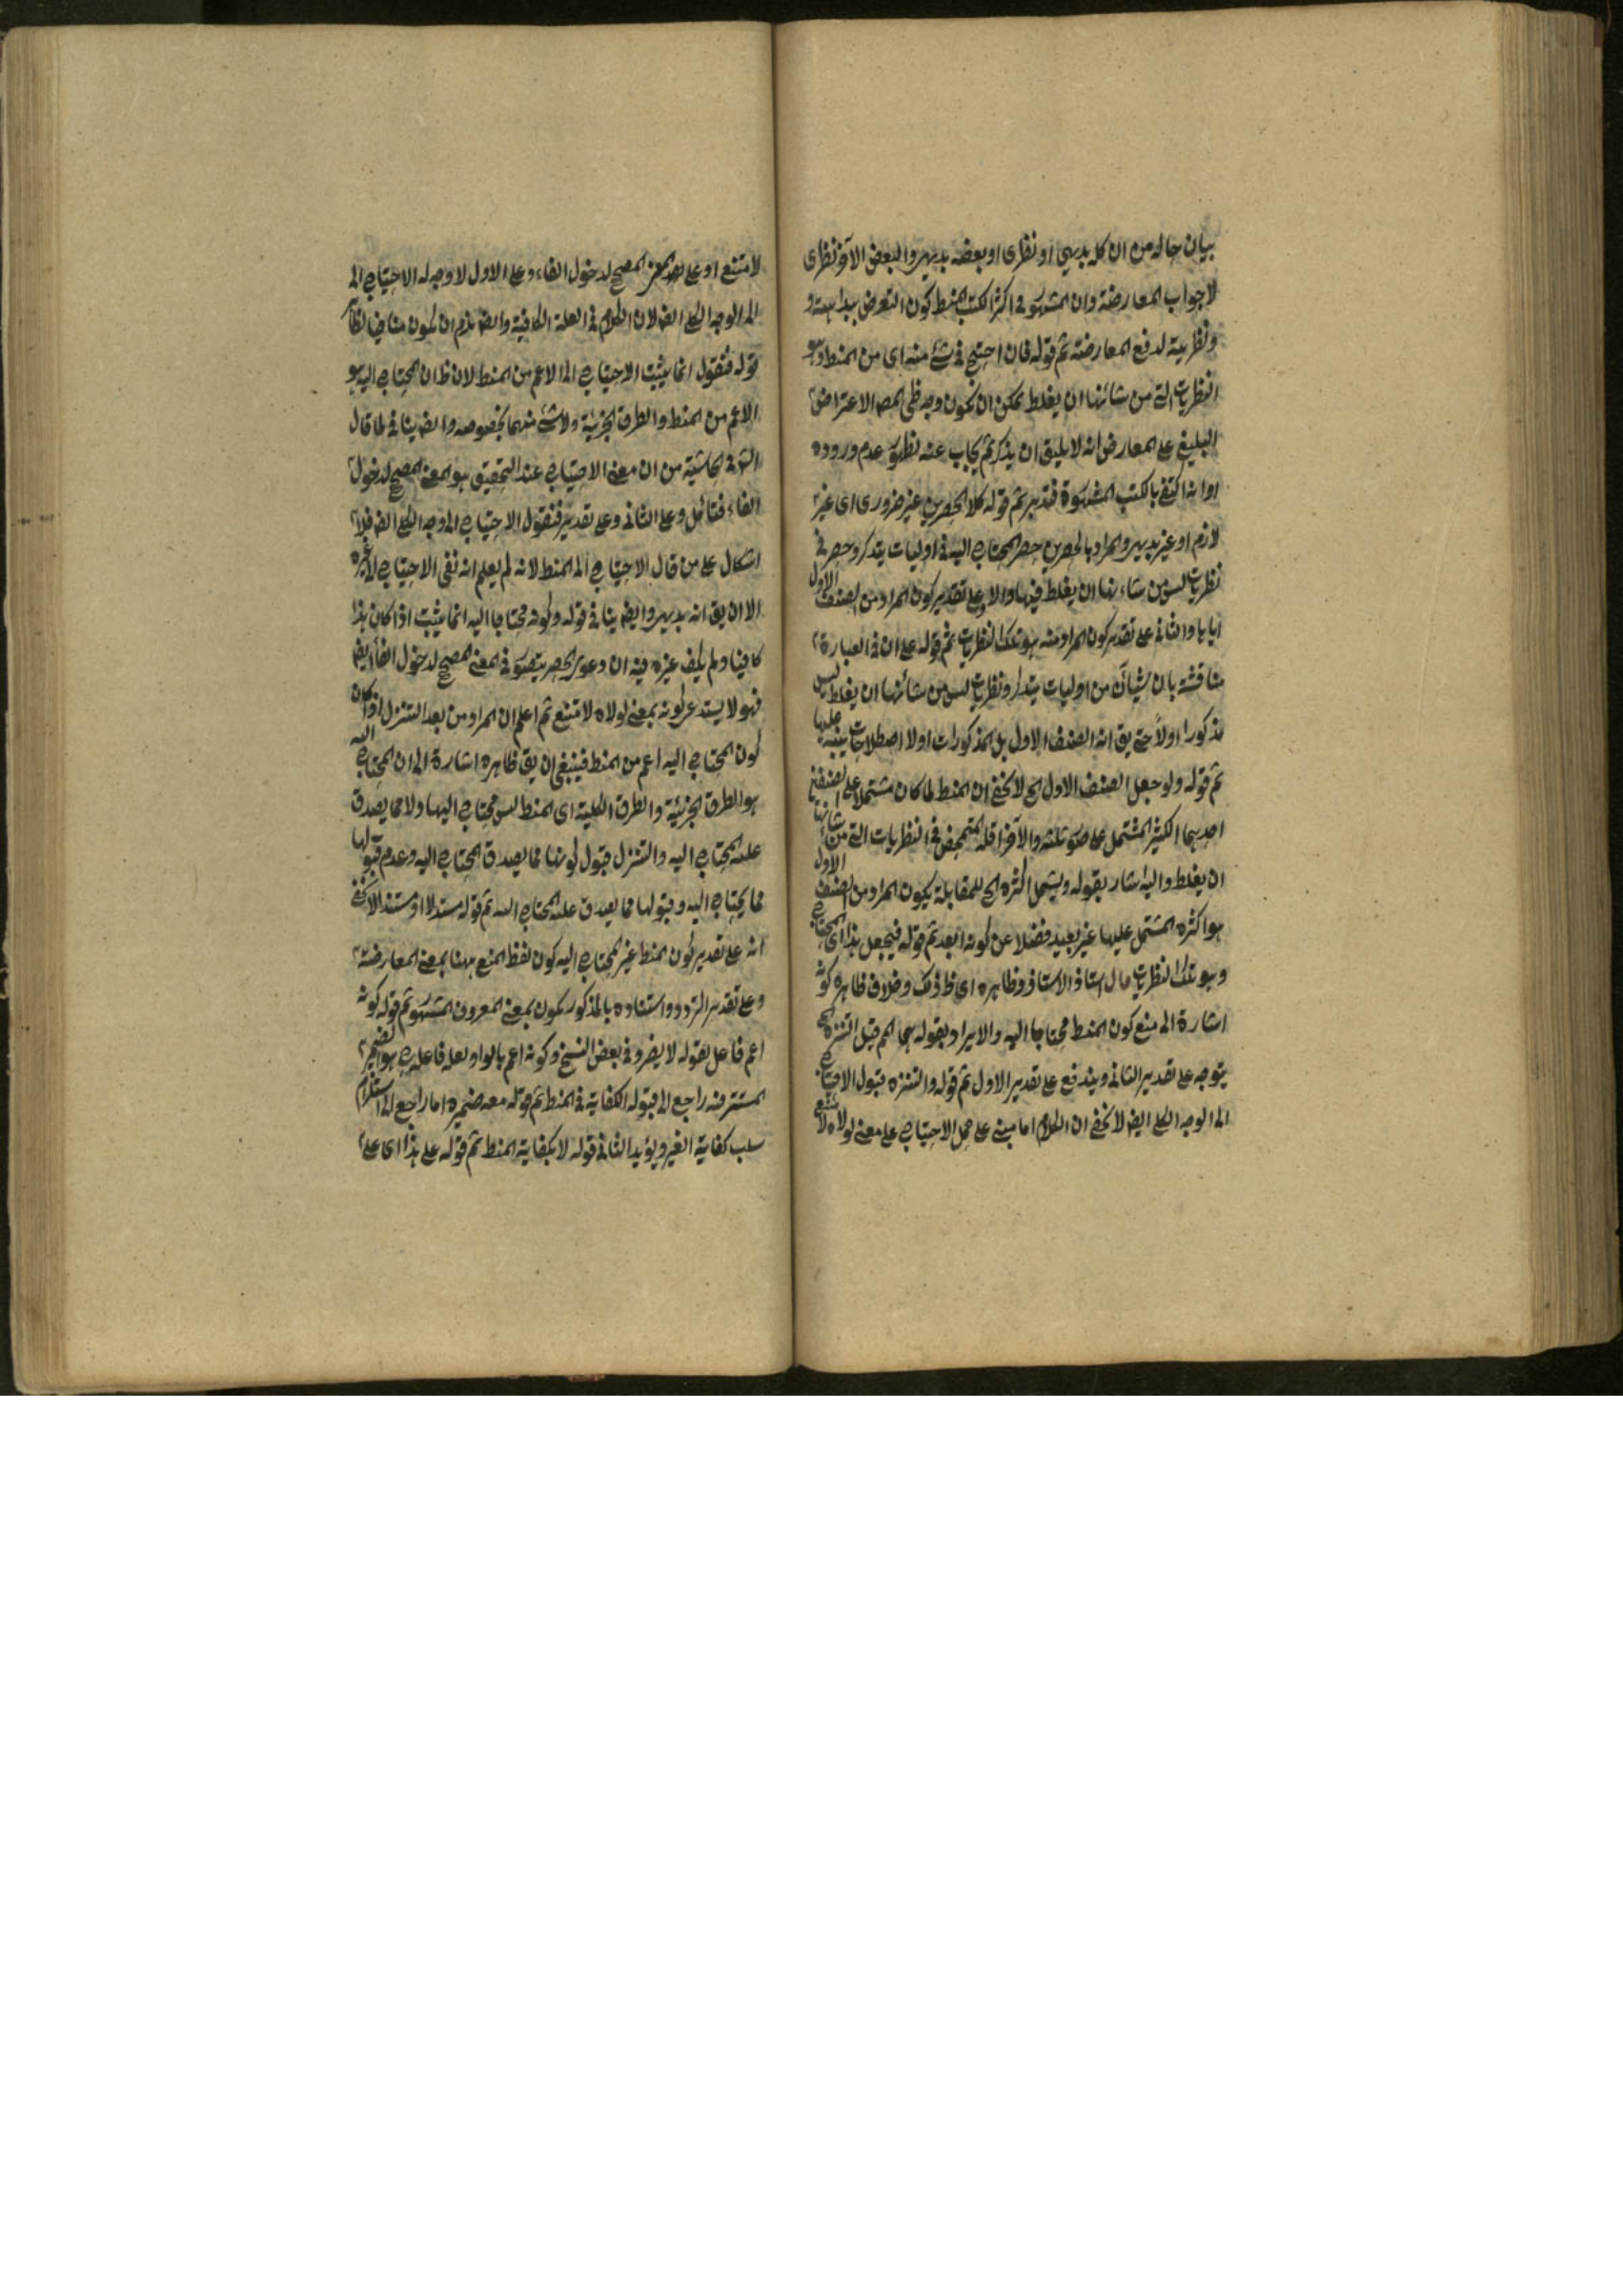 بيان حاله من ان كله بديهي او نظرى او بعضه بديهى والبعض الآخر نظرى
لا جواب المعارضة وان المشهور فى اكثر الكتب المنط كون التعرض ببداهته و
ونظريته لدفع المعارضة ثم قوله فان احتيج فى شئ منه اى من المنط وهو
النظريات التى من شانها ان يغلط يمكن ان يكون وجه ظن المص الاعتراض
البليغ على المعارض انه لا يليق ان يذكر ثم يجاب عنه لظهور عدم وروده
او انه اكتفى بالكتب المشهورة فتدبر ثم قوله كلا الحصرين غير ضرورى اى غير
لازم او غير بديهى والمراد بالحصرين حصر المحتاج اليه فى اوليات يتذكر وحصره فى
نظريات ليس من شاءنها ان يغلط فيها والاول على تقدير كون المراد من الصنف الاول
اياها والثانى على تقدير كون المراد منه هو تلك النظريات ثم قوله على ان فى العبارة
مناقشة بان شيئا من اوليات يتذكر ونظريات ليس من شأنها ان يغلط ليس
مذكورا اولا حتى يق انه الصنف الاول بل المذكورات اولا اصطلاحات ينبه عليها
ثم قوله ولو جعل الصنف الاول الح لا يخفى ان المنط لما كان مشتملا على الصنفين
احديهما الكثير المشتمل على صور ثلثة والآخر اقله المتمحض فى النظريات التى من شانها
ان يغلط واليه اشار بقوله ويشمل اكثره الح للمقابلة يكون المراد من الصنف الاول
هو اكثره المشتمل عليها غير بعيد فضلا عن كونه ابعد ثم قوله فيجعل هذا اى المحتاج
وهو تلك النظريات مال استاذ الاستاذ وظاهره اى ظ ذلك وخلاف ظاهره كونه
اشارة الى منع كون المنط محتاجا اليه والايراد بقوله قيل التنزه الح
يتوجه على تقدير الثانى ويندفع على تقدير الاول ثم قوله والتنزه قبول الاحتياج
الى الوجه الكلى ايض لا يخفى ان الكلام اما مبنى على حمل الاحتياج على معنى لولاه لا متنع
لامتنع او على المعنى المصحح لدخول الفاء وعلى الاول لا وجه له الاحتياج الى
الى الوجه الكلى ايض لان الكلام فى العلة الكافية وايض يلزم ان يكون منافيا لظاهر
قوله فنقول انما يثبت الاحتياج الى الاعم من المنط لان ظ ان المحتاج اليه هو
الاعم من المنط والطرق الجزئية ولا شئ منهما بخصوصه وايض ينافى لما قال
الش فى الحاشية من ان معنى الاحتياج عند التحقيق هو المعنى المصحح لدخول
الفاء فتأمل وعلى الثانى وعلى تقدير فنقول الاحتياج الى الوجه الكلى ايض فلا
اشكال على من قال الاحتياج الى المنط لانه لم يعلم انه نفى الاحتياج الى غيره
الا ان يق انه بديهى وايض ينافى قوله وكونه محتاجا اليه انما يثبت اذا كان هذا
كافيا ولم يكف غيره فيه ان دعوى الحصر يتصور فى المعنى المصحح لدخول الفاء ايض
فهو لا يستدعى كونه بمعنى لولاه لامتنع ثم اعلم ان المراد من بعد التنزل اذ كان
كون المحتاج اليه اعم من المنط فينبغى ان يق ظاهره اشارة الى ان المحتاج اليه
هو الطرق الجزئية والطرق الكلية اى المنط ليس محتاج اليها ولا مما يصدق
عليه المحتاج اليه والتنزل قبول كونها مما يصدق المحتاج اليه وعدم قبولها
مما يحتاج اليه وقبولها مما يصدق عليه المحتاج اليه ثم قوله مستدلا او مستندا لا يخفى
انه على تقدير كون المنط غير المحتاج اليه كون لفظ المنع ههنا بمعنى المعارضة
وعلى تقدير التردد واستناده بالمذكور يكون بمعنى المعروف المشهور ثم قوله كونه
اعم فاعل لقوله لا يضر وفى بعض النسخ وكونه اعم بالواو لعله فاعله هو الضمير
المستتر فيه راجع الى قبوله الكفاية فى المنط ثم قوله معه ضميره اما راجع الى استلزام
سلب كفاية الغير ويؤيد الثانى قوله لا بكفاية المنط ثم قوله على هذا اى على